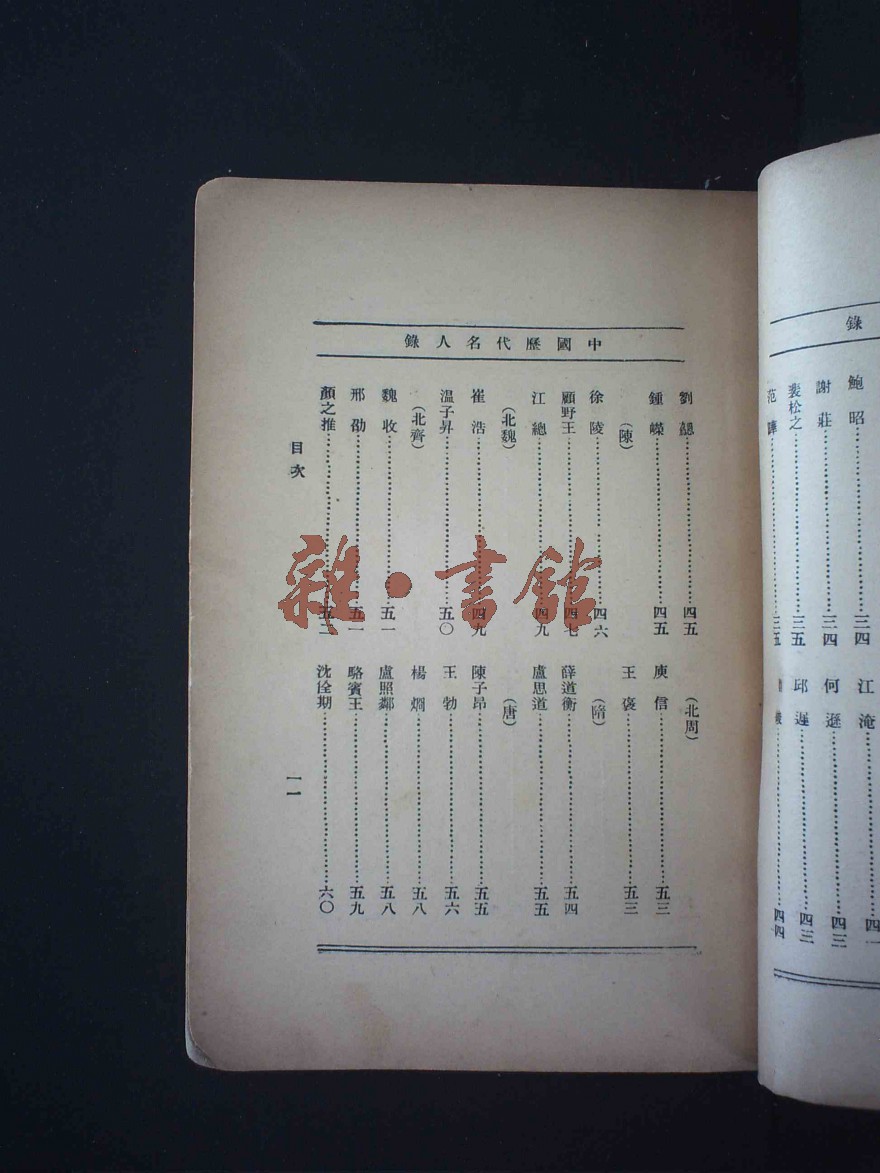 錄
鮑昭……三四
謝莊……三四
裴松之……三五
范曄……三五
江淹……四一
何遜……四三
邱遲……四三
四四
中國歷代名人錄
劉勰……四五
鍾嶸……四五
(陳)
徐陵……四六
顧野王……四七
江總……四九
(北魏)
崔浩……四九
溫子昇……五〇
(北齊)
魏收……五一
邢劭……五一
顏之推……五二
(北周)
庾信……五三
王褒……五三
(隋)
薛道衡……五四
盧思道……五五
(唐)
陳子昂……五五
王勃……五六
楊烱……五八
盧照鄰……五八
駱賓王……五九
沈佺期……六〇
目次
一一
雜·書館